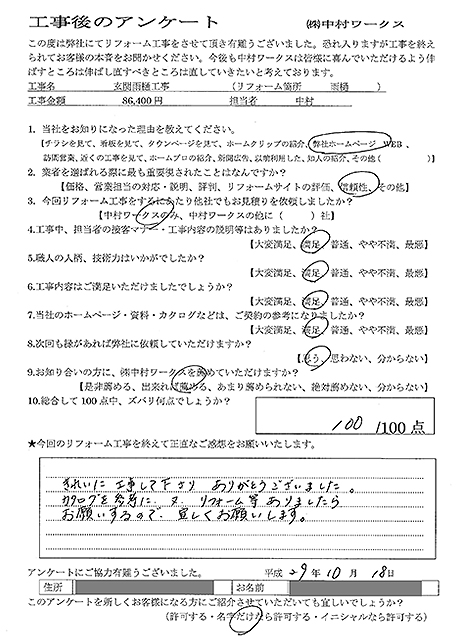 工事後のアンケート ㈱中村ワークス
この度は弊社にてリフォーム工事をさせて頂き有難うございました。恐れ入りますが工事を終え
られてお客様の本音をお聞かせください。今後も中村ワークスは皆様に喜んでいただけるよう伸
ばすところは伸ばし直すべきところは直していきたいと考えております。
工事名 玄関雨樋工事 (リフォーム箇所 雨樋 )
工事金額 86,400円 担当者 中村
1. 当社をお知りになった理由を教えてください。
【チラシを見て、看板を見て、タウンページを見て、ホームクリップの紹介、弊社ホームページ WEB、
訪問営業、近くの工事を見て、ホームプロの紹介、新聞広告、以前利用した、知人の紹介、その他( )】
2. 業者を選ばれる際に最も重要視されたことはなんですか?
【価格、営業担当の対応・説明、評判、リフォームサイトの評価、信頼性、その他】
3. 今回リフォーム工事をするにあたり他社でもお見積りを依頼しましたか?
【中村ワークスのみ、中村ワークスの他に ( ) 社】
4.工事中、担当者の接客マナー・工事内容の説明等はありましたか?
【大変満足、満足 普通、やや不満、最悪】
5.職人の人柄、技術力はいかがでしたか?
【大変満足、満足 普通、やや不満、最悪】
6.工事内容はご満足いただけましたでしょうか?
【大変満足、満足 普通、やや不満、最悪】
7.当社のホームページ・資料・カタログなどは、ご契約の参考になりましたか?
【大変満足、満足 普通、やや不満、最悪】
8.次回も縁があれば弊社に依頼していただけますか?
【思う、思わない、分からない】
9.お知り合いの方に、㈱中村ワークスを薦めていただけますか?
【是非薦める、出来れば薦める、あまり薦められない、絶対薦めない、分からない】
10.総合して100点中、ズバリ何点でしょうか?
100 /100点
★今回のリフォーム工事を終えて正直なご感想をお願いいたします。
きれいに工事して下さり ありがとうございました。
カタログを参考に、又、リフォーム等ありましたら
お願いするので、宜しくお願いします。
アンケートにご協力有難うございました。 平成 29年 10月 18日
住所 お名前
このアンケートを新しくお客様になる方にご紹介させていただいても宜しいでしょうか?
(許可する・名字だけなら許可する・イニシャルなら許可する)